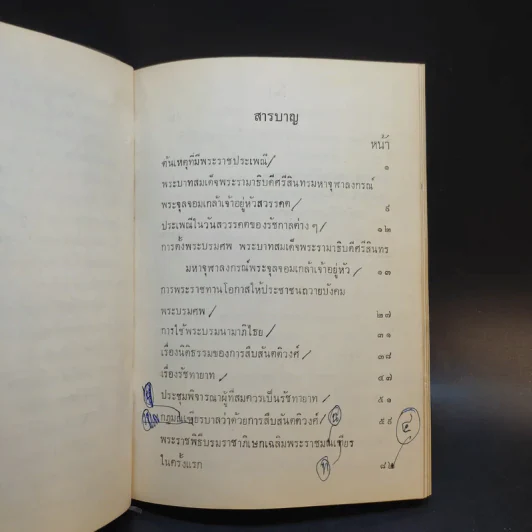 สารบาญ
หน้า
ต้นเหตุที่มีพระราชประเพณี/ ๑
พระบาทสมเด็จพระรามาธิบดีศรีสินทรมหาจุฬาลงกรณ์
พระจุลจอมเกล้าเจ้าอยู่หัวสวรรคต/
ประเพณีในวันสวรรคตของรัชกาลต่าง ๆ/ ๑๒
การตั้งพระบรมศพ พระบาทสมเด็จพระรามาธิบดีศรีสินทร
มหาจุฬาลงกรณ์พระจุลจอมเกล้าเจ้าอยู่หัว/ ๑๓
การพระราชทานโอกาสให้ประชาชนถวายบังคม
พระบรมศพ/ ๒๗
การใช้พระบรมนามาภิไธย/ ๓๑
เรื่องนิติธรรมของการสืบสันตติวงศ์/ ๓๘
เรื่องรัชทายาท/ ๔๗
ประชุมพิจารณาผู้ที่สมควรเป็นรัชทายาท/ ๕๑
กฎมณเฑียรบาลว่าด้วยการสืบสันตติวงศ์/
พระราชพิธีบรมราชาภิเษกเฉลิมพระราชมณเฑียร
ในครั้งแรก